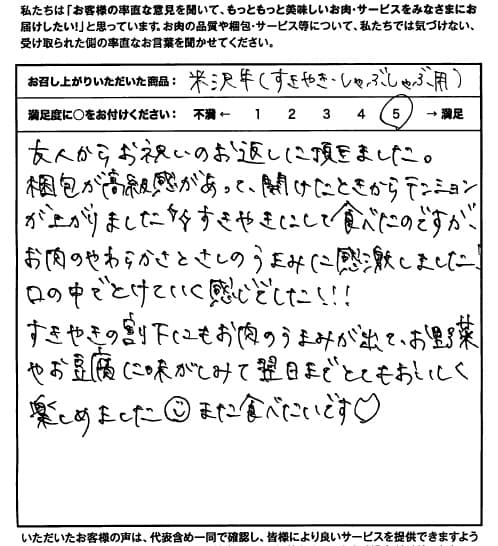 私たちは「お客様の率直な意見を聞いて、もっともっと美味しいお肉・サービスをみなさまにお
届けしたい!」と思っています。お肉の品質や梱包・サービス等について、私たちでは気づけない、
受け取られた側の率直なお言葉を聞かせてください。
お召し上がりいただいた商品： 米沢牛(すきやき・しゃぶしゃぶ用)
満足度に○をお付けください： 不満 ← 1 2 3 4 5 → 満足
友人からお祝いのお返しに頂きました。
梱包が高級感があって、開けたときからテンション
が上がりました♪♪すきやきにして食べたのですが、
お肉のやわらかさとさしのうまみに感激しました!
口の中でとけていく感じでした!!!
すきやきの割下にもお肉のうまみが出て、お野菜
やお豆腐に味がしみて翌日までとてもおいしく
楽しめました☺また食べたいです♡
いただいたお客様の声は、代表含め一同で確認し、皆様により良いサービスを提供できますよう